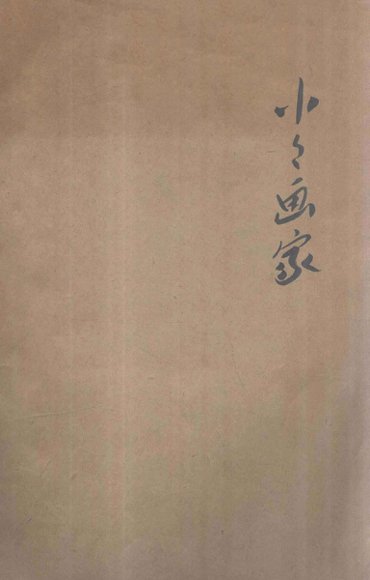 小々画家